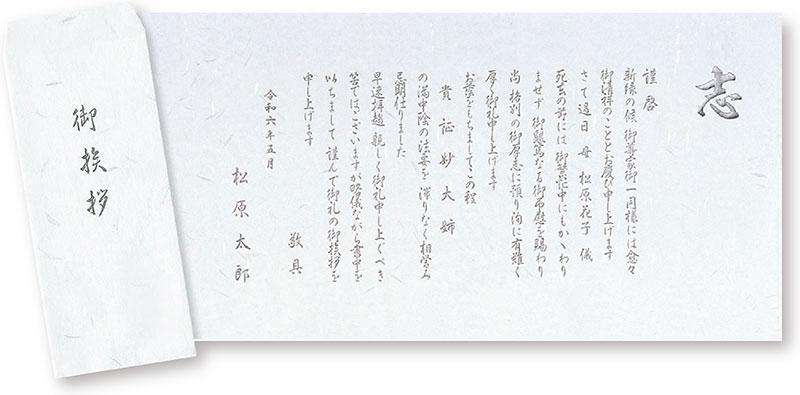 御挨拶
志
謹啓
新緑の候 御尊家御一同様には愈々
御清祥のこととお慶び申し上げます
さて過日 母 松原花子 儀
死去の節には 御繁忙中にもかゝわり
ませず 御懇篤なる御弔慰を賜わり
尚 格別の御厚志に預り洵に有難く
厚く御礼申し上げます
お蔭をもちましてこの程
貴証妙大姉
の満中陰の法要を 滞りなく相営み
忌明仕りました
早速拝趨 親しく御礼申し上ぐべき
筈ではございますが略儀ながら書中を
以ちまして 謹んで御礼の御挨拶を
申し上げます
敬具
令和六年五月
松原太郎